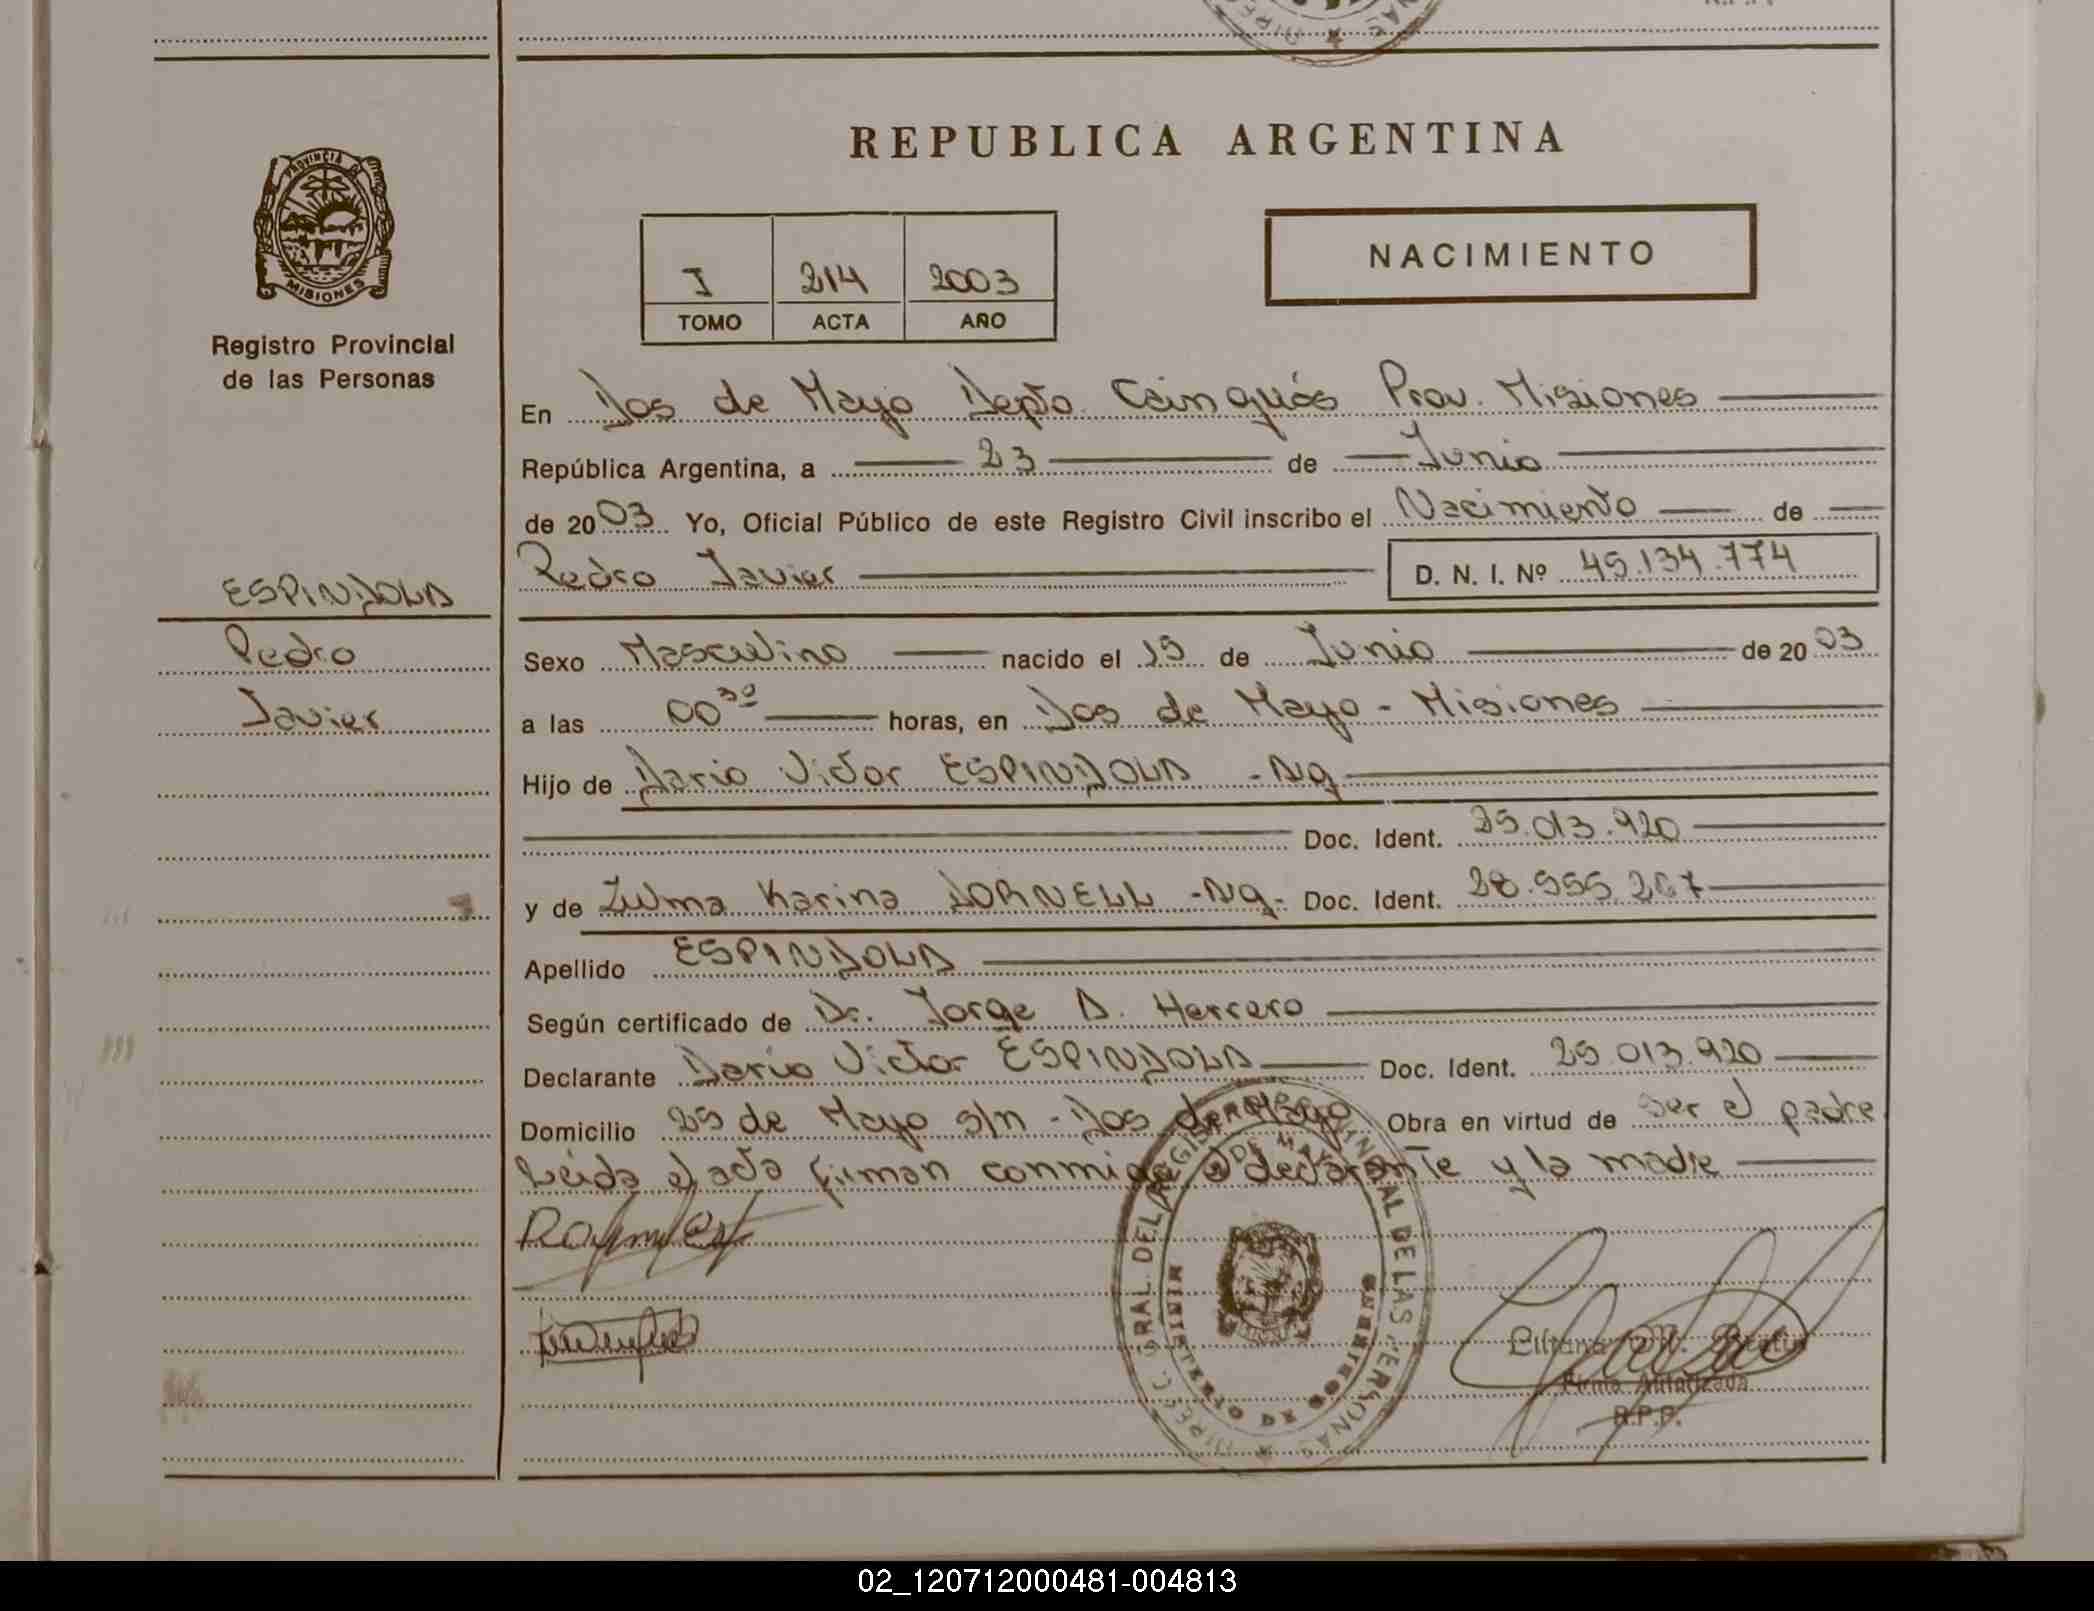 REPUBLICA ARGENTINA
NACIMIENTO
PROVINCIA DE
MISIONES
Registro Provincial
de las Personas
I 214 2003
TOMO ACTA AÑO
En Dos de Mayo Depto. Cainguás Prov. Misiones
República Argentina, a 23 de Junio
de 2003 Yo, Oficial Público de este Registro Civil inscribo el Nacimiento de
Pedro Javier D. N. I. Nº 45.134.774
ESPINDOLA
Pedro
Javier
Sexo Masculino nacido el 15 de Junio de 2003
a las 00 30 horas, en Dos de Mayo - Misiones
Hijo de Dario Victor ESPINDOLA - Ag
Doc. Ident. 25.013.920
y de Zulma Karina DORNELL - Ag - Doc. Ident. 28.555.267
Apellido ESPINDOLA
Según certificado de Dr. Jorge A. Herrero
Declarante Dario Victor ESPINDOLA Doc. Ident. 25.013.920
Domicilio 25 de Mayo s/n - Dos de Mayo Obra en virtud de ser el padre
Leida el acta firman conmigo el declarante y la madre
DIREC. GRAL. DEL REGISTRO PROVINCIAL DE LAS PERSONAS
MINISTERIO DE GOBIERNO
Firma Autorizada
R.P.P.
02_120712000481-004813